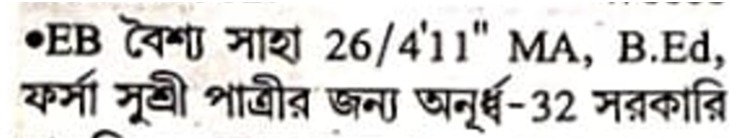 •EB বৈশ্য সাহা 26/4'11" MA, B.Ed,
ফর্সা সুশ্রী পাত্রীর জন্য অনূর্ধ্ব-32 সরকারি